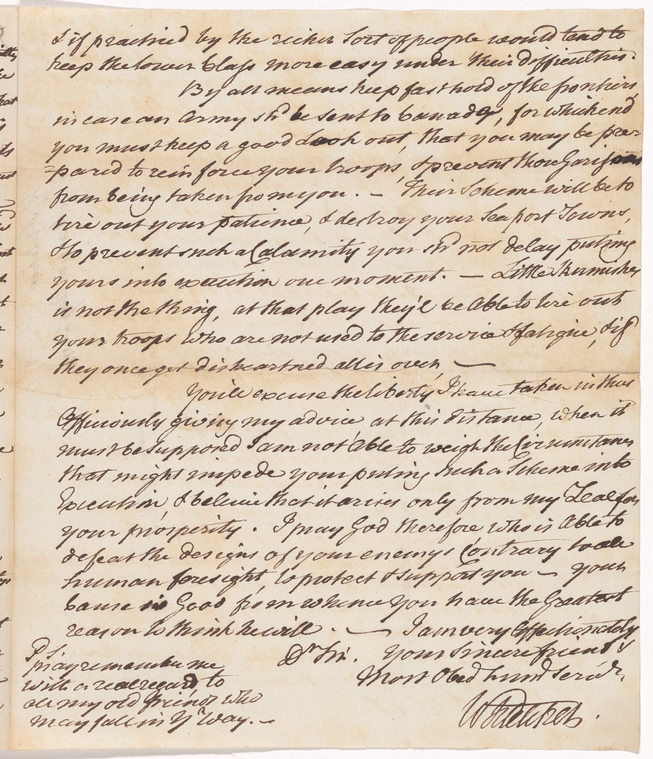 & if practised by the richer Sort of people would tend to
keep the lower Class more easy under their difficulties.
By all means keep fast hold of the frontiers
in case an Army shd be sent to Canada, for which end
you must keep a good Look out, that you may be pre=
=pared to reinforce your troops, & prevent those Garisons
from being taken from you. — Their Scheme will be to
tire out your patience, & destroy your Sea port Towns,
& to prevent such a Calamity you shd not delay puting
yours into execution one moment. — Little Skirmishes
is not the thing, at that play they'l be Able to tire out
your troops who are not used to the service & fatigue, & if
they once get disheartned all is over, —
You'll excuse the liberty I have taken in thus
Officiously giving my advice at this distance, when it
must be supposed I am not Able to weigh the Circumstances
that might impede your puting such a Scheme into
Execution, & believe that it arises only from my Zeal for
your prosperity. I pray God therefore who is Able to
defeat the designs of your enemys Contrary to all
human foresight, to protect & support you — your
Cause is Good from whence you have the Greatest
reason to think he will. — I am very Affectionately
Dr Sir. Your Sincere friend &
Most Obed hum Servt
P.S.
pray remember me
with a real regard to
all my old friends who
may fall in Yr way. —